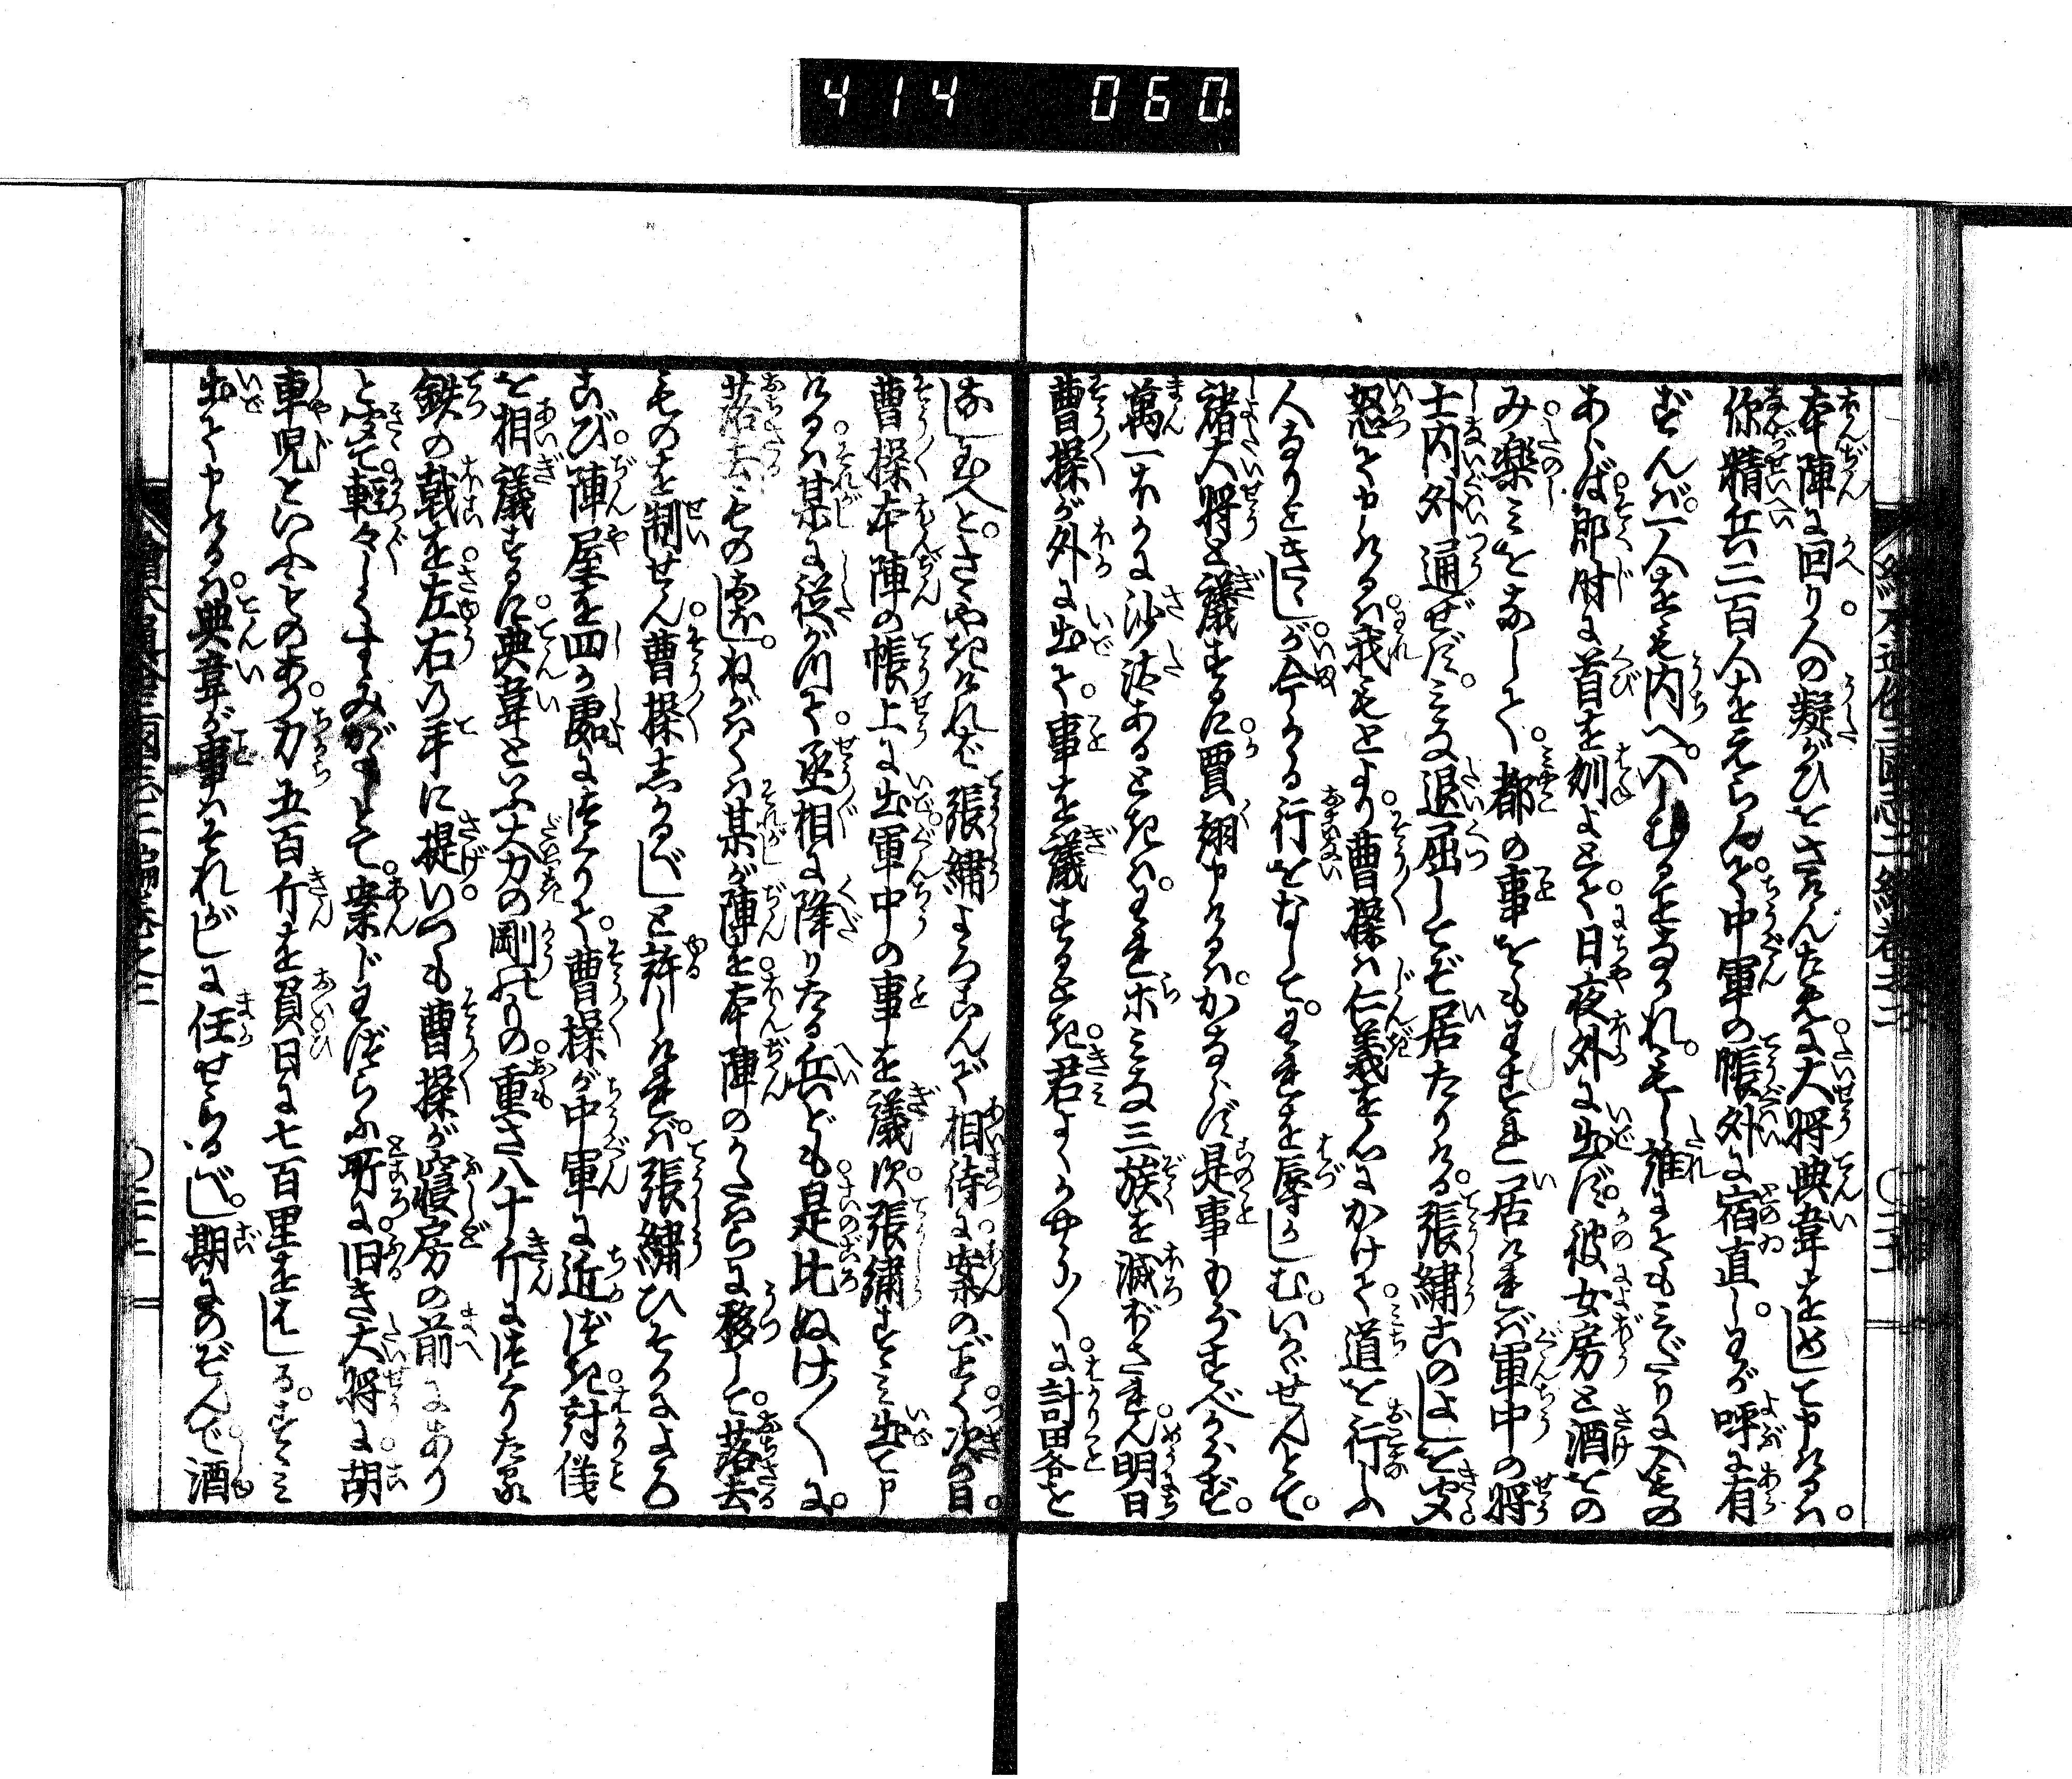 414 060
本陣に回り。人の疑がひをさけんため。に大将典韋をめして申けるハ。
你精兵二百人をえらんで。中軍の帳外に宿直し。わが呼に有
ずんバ。一人をも内へ入しむる事なかれ。もし誰にても
あらば。即時に首を刎よとて。日夜外に出ず。彼女房と酒をの
み。楽ミをなして。都の事をもわすれ居けれバ。軍中の将
士内外通ぜず。ミな退屈してぞ居たりける。張繍このよしを聞。
怒て申けるハ。我もとより曹操ハ仁義を心にかけて。道を行ふ
人なりときゝしが。今かゝる行をなして。われを辱しむ。いかゞせんとて。
諸大将と議するに。賈詡申けるハ。かならず是事もらすべからず。
萬一ほかに沙汰あるときハ。われホミな三族を滅ぼされん。明日
曹操が外に出て。事を議するとき。君よく〳〵に計畧を
なし玉へと。さゝやきけれバ。張繍よろこんで相待に。案のごとく。次の日。
曹操本陣の帳上に出。軍中の事を議ス。張繍すゝミ出て申
けるハ。某に従がつて。丞相に降りたる兵ども。是比ぬけ〳〵に。
落去もの多し。ねがハくハ某が陣を。本陣のかたハらに移して。落去
ものを制せん。曹操しかるべしと許しけれバ。張繍ひそかによろ
こび。陣屋を四か処につくりて。曹操が中軍に近づき。討伐
を相議するに。典韋とて大力の剛のもの。重さ八十斤につくりたる
鉄の戟を左右の手に提。いつも曹操が寝房の前にあり
と聞て。軽々しくすゝみがたしとて。案じわづらふ所に。旧き大将に胡
車児といふものあり。力五百斤を負。日に七百里をはしる。すゝミ
出て申けるハ。典韋が事ハそれがしに任せらるべし。期にのぞんで。酒